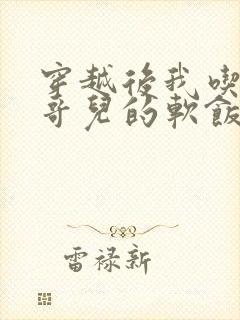 穿越後我喫
哥兒的軟飯
雷禄新